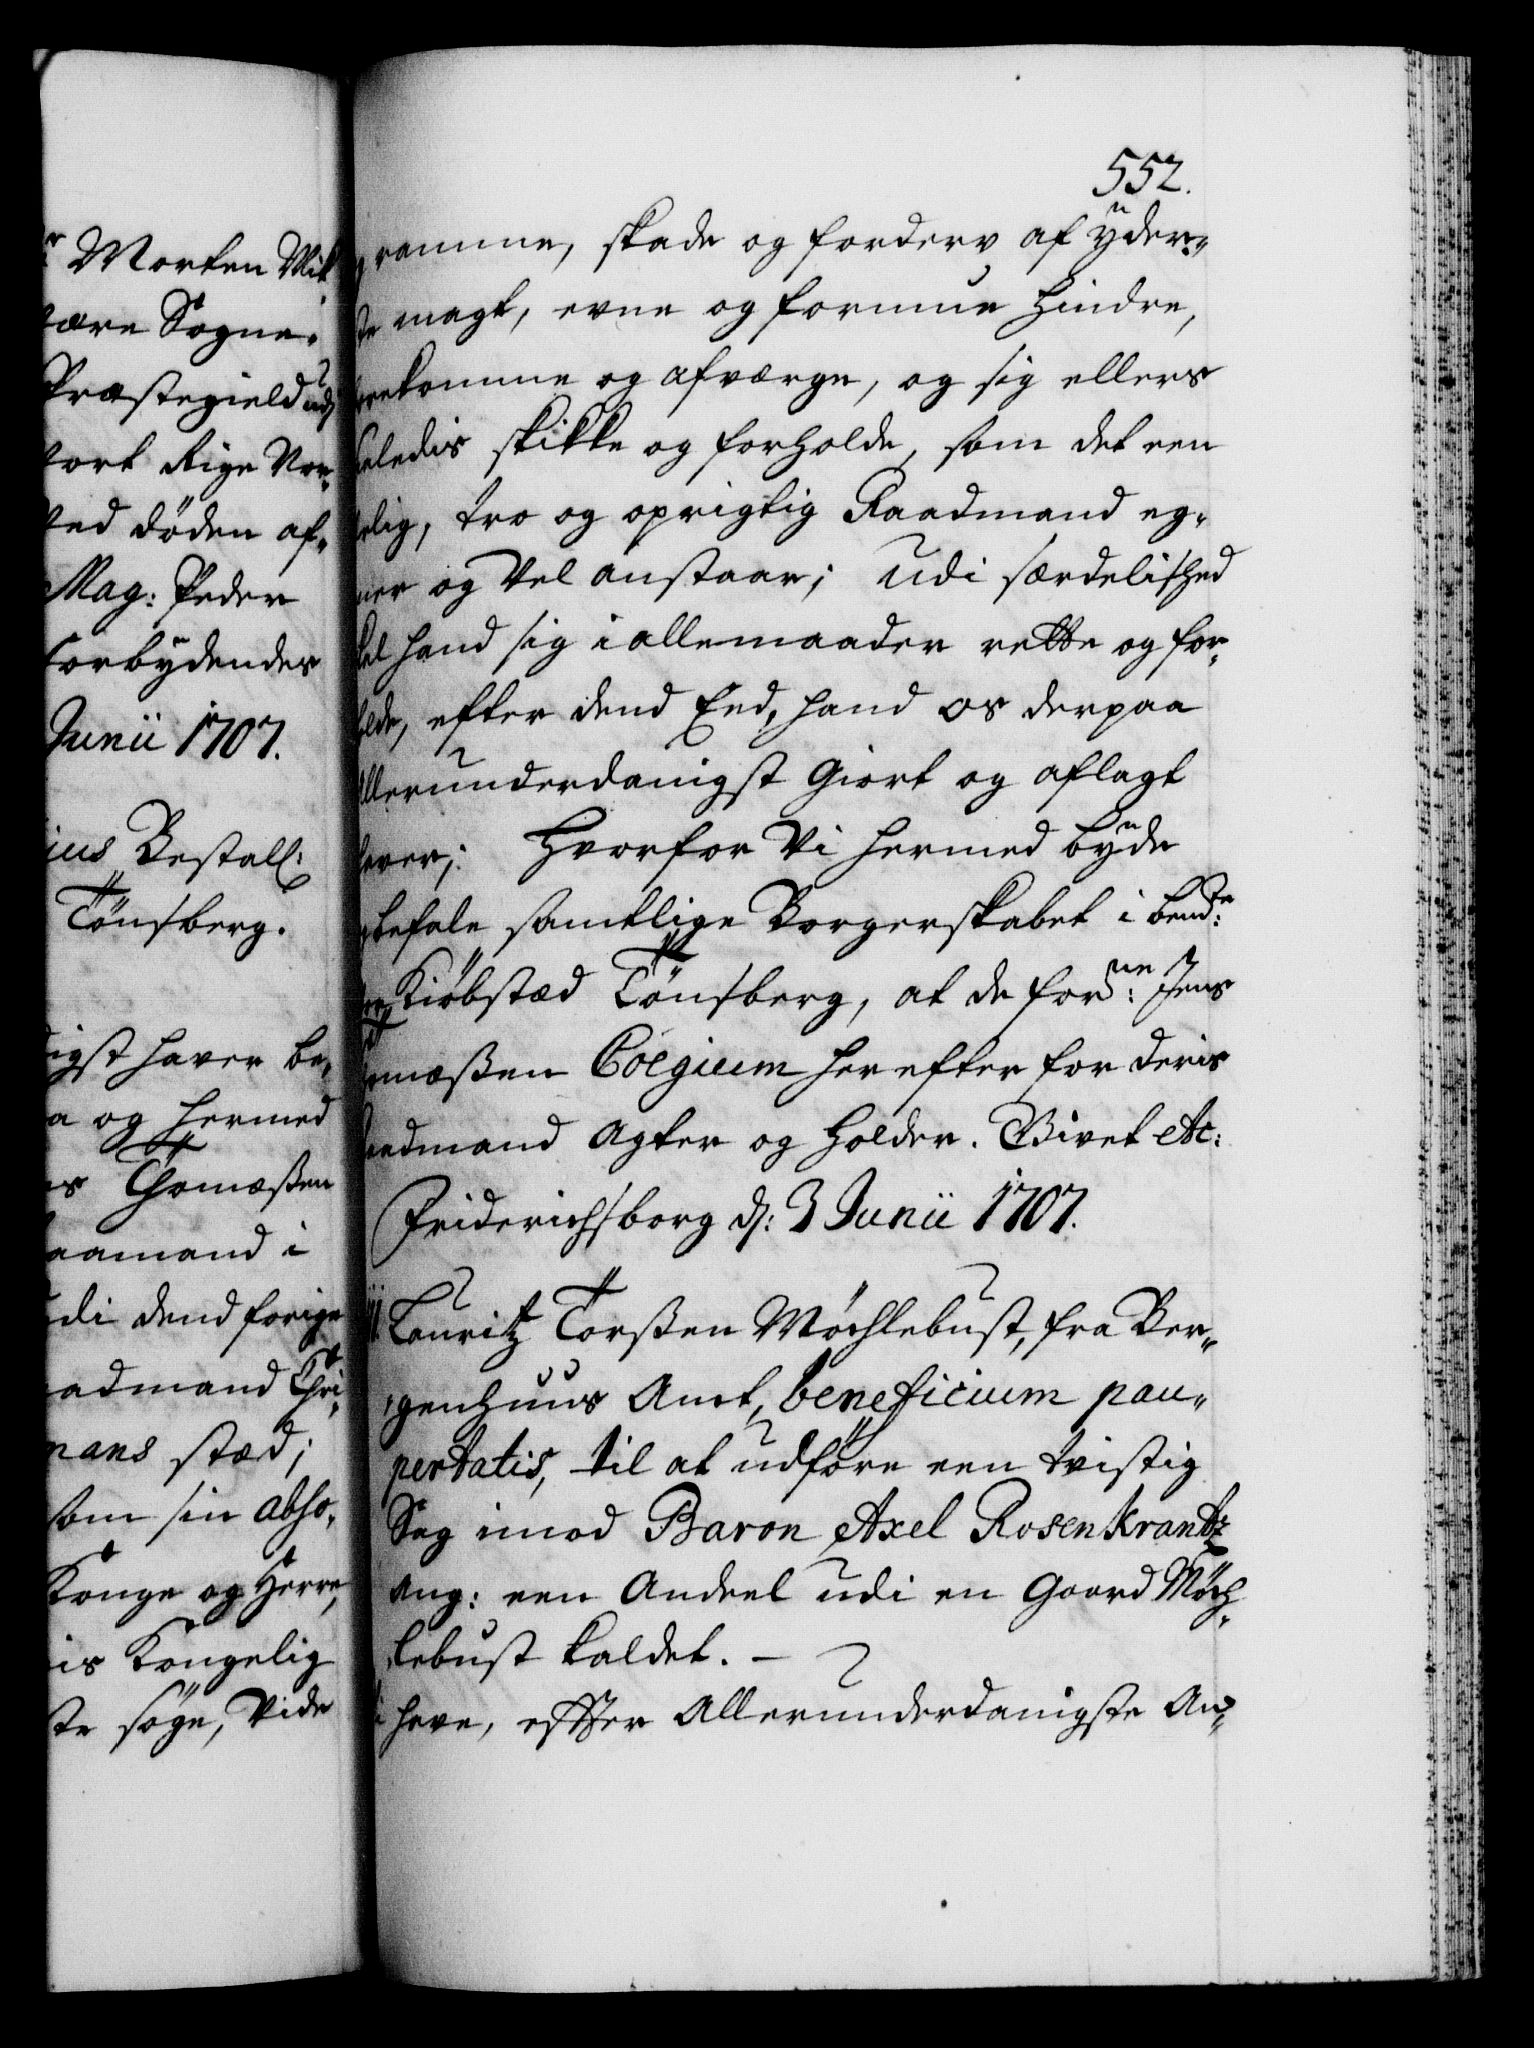 Morten Mik
være Sogne-
Præstegield udj
vort Rige Nor-
ved døden af-
Mag: Peder
forbydendes
Junii 1707.
ius Bestall:
Tønsberg.
digst haver be-
a og hermed
s Thomæßen
aamand i
di dend forige
admand Chri-
mans stæd;
som sin abso-
Konge og Herre,
is Kongelig
te søge, Vide
552.
ramme, skade og forderv af yder-
ste magt, evne og formue hindre,
forekomme og afværge, og sig ellers
saaledis skikke og forholde, som det een
ærlig, tro og oprigtig Raadmand eg-
ner og Vel anstaar; Udi særdelished
skal hand sig i allemaader rette og for-
holde, efter dend Eed, hand os derpaa
Allerunderdanigst Giort og aflagt
haver; Hvorfor Vi hermed byde
og befale samtlige Borgerskabet i bemd:te
vor Kiøbstæd Tønsberg, at de ford:ne Jens
Thomæßen Colgium herefter for deris
Raadmand Agter og Holder. Givet etc:
Friderichsborg d: 3 Junii 1707.
Lauritz Torßen Møchlebust, fra Ber-
genhuus Amt, beneficium pau-
pertatis, til at udføre een tvistig
Sag imod Baron Axel Rosenkrantz
ang: een Andeel udi en Gaard Møch-
lebust kaldet. –
Vi have, effter Allerunderdanigste An-